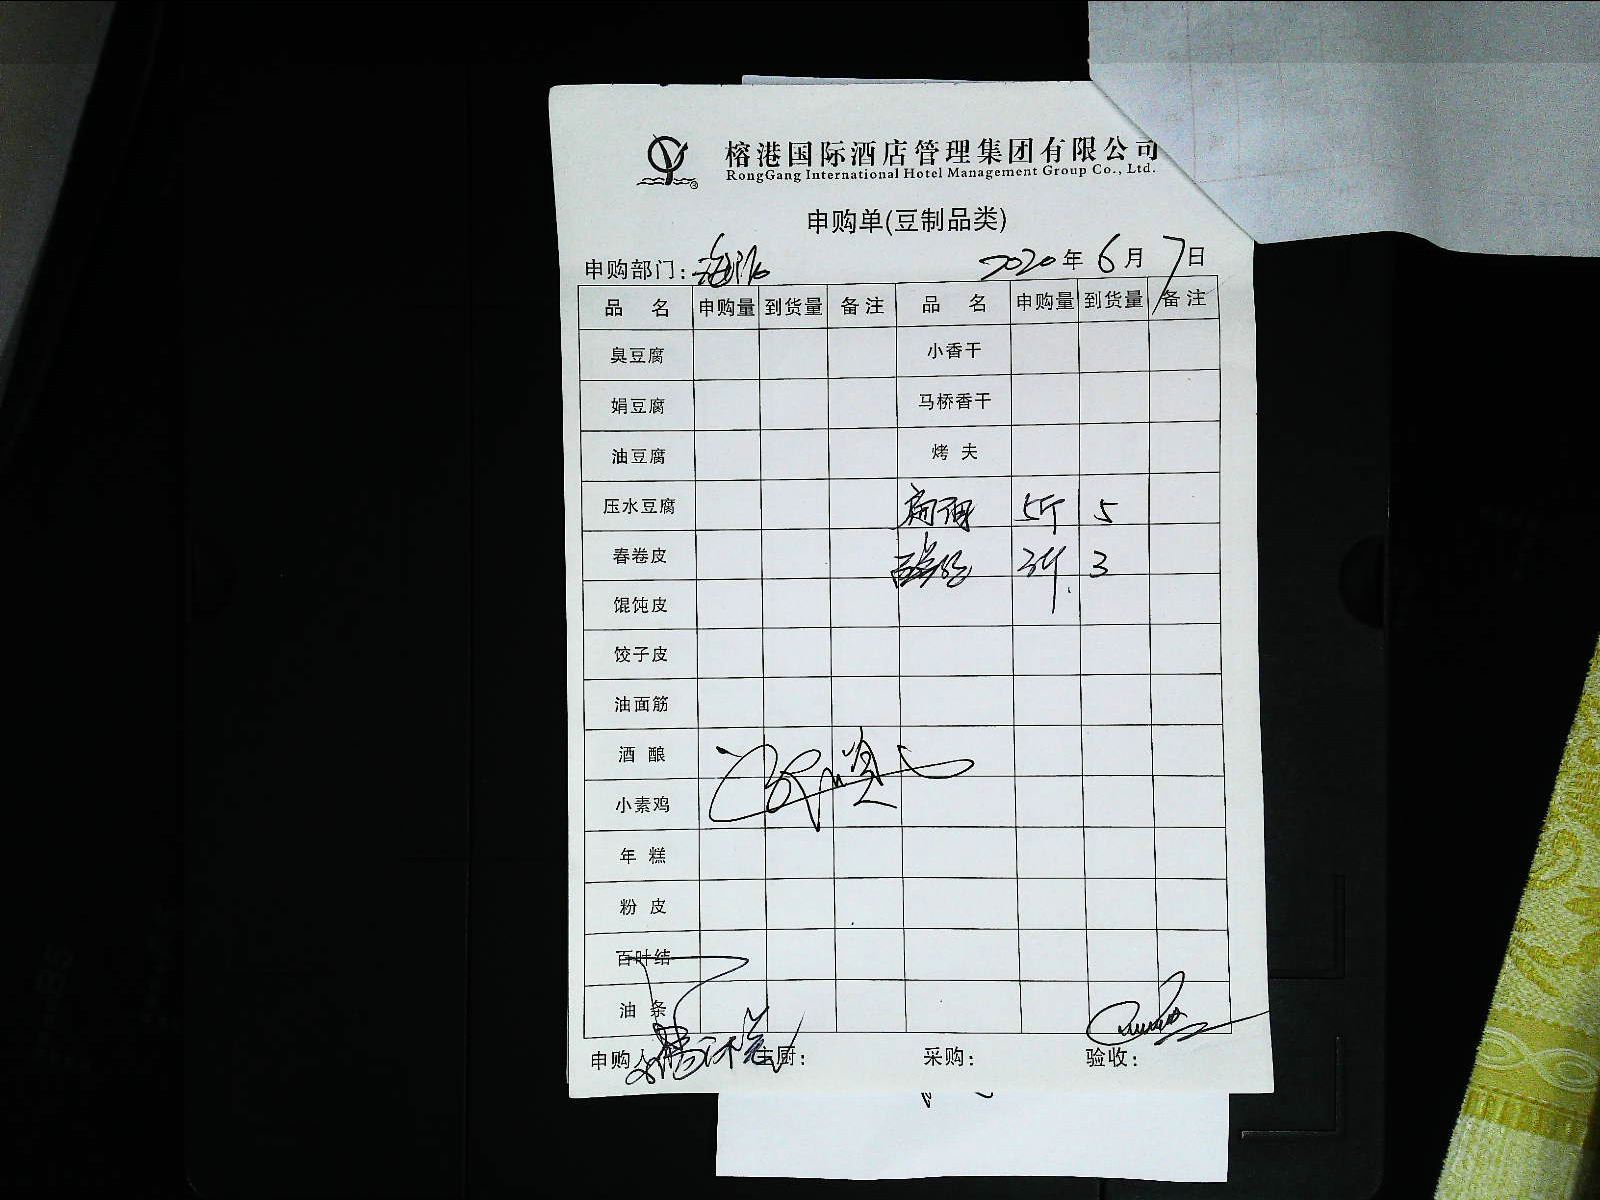 榕港国际酒店管理集团有限公司
RongGang International Hotel Management Group Co., Ltd.
申购单(豆制品类)
申购部门: 2020年6月7日
品 名 申购量 到货量 备注 品 名 申购量 到货量 备注
臭豆腐 小香干
娟豆腐 马桥香干
油豆腐 烤 夫
压水豆腐 5斤 5
春卷皮 3斤 3
馄饨皮
饺子皮
油面筋
酒 酿
小素鸡
年 糕
粉 皮
百叶结
油 条
申购人 主厨: 采购: 验收: